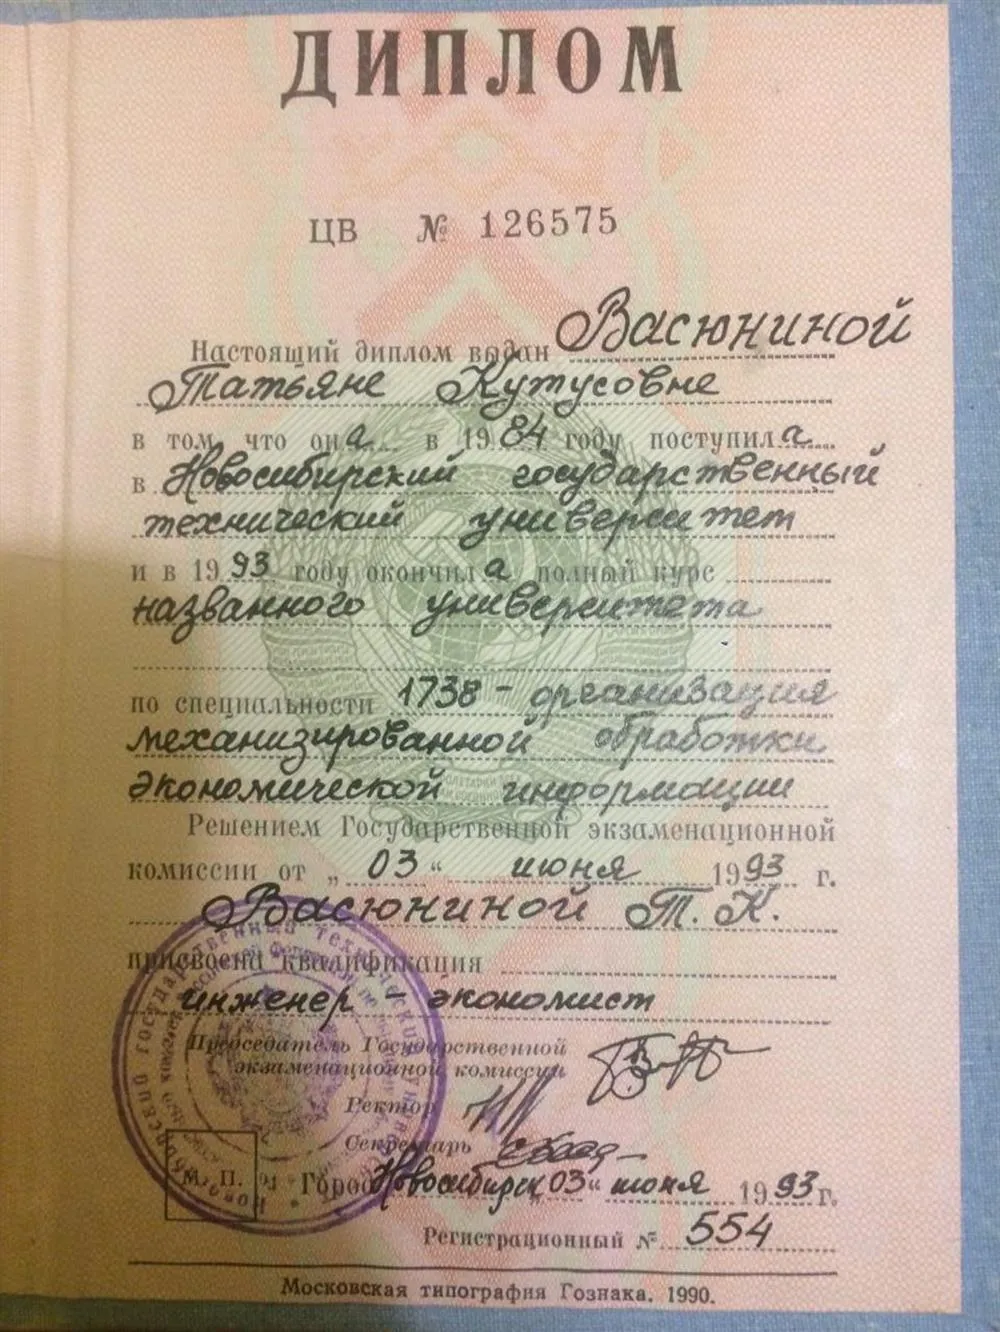 ДИПЛОМ
ЦВ № 126575
Настоящий диплом выдан Васюниной
Татьяне Кутусовне
в том, что она в 1984 году поступила
в Новосибирский государственный
технический университет
и в 1993 году окончила полный курс
названного университета
по специальности 1738 - организация
механизированной обработки
экономической информации
Решением Государственной экзаменационной
комиссии от „03“ июня 1993 г.
Васюниной Т. К.
присвоена квалификация
инженер - экономист
Председатель Государственной
экзаменационной комиссии
Ректор
Секретарь
М. П. Город Новосибирск 03“ июня 1993 г.
Регистрационный № 554
Московская типография Гознака. 1990.